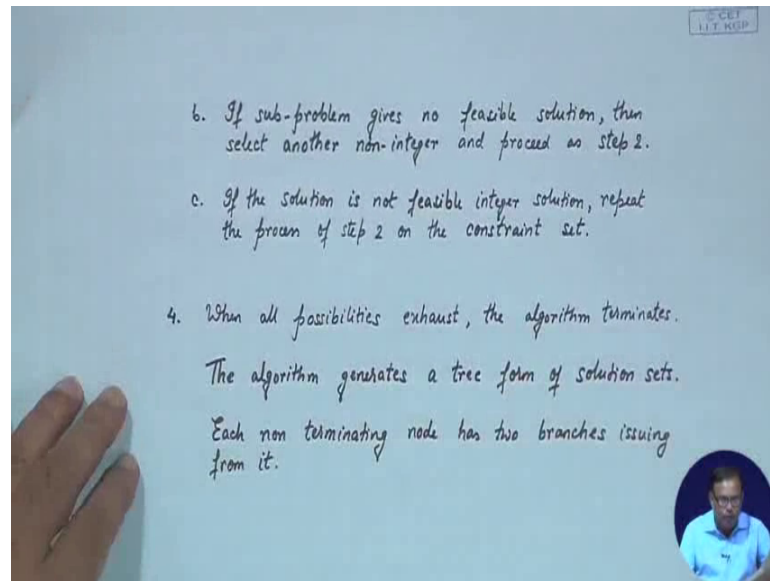 © CET
I.I.T. KGP
b. If sub-problem gives no feasible solution, then
select another non-integer and proceed as step 2.
c. If the solution is not feasible integer solution, repeat
the process of step 2 on the constraint set.
4. When all possibilities exhaust, the algorithm terminates.
The algorithm generates a tree form of solution sets.
Each non terminating node has two branches issuing
from it.